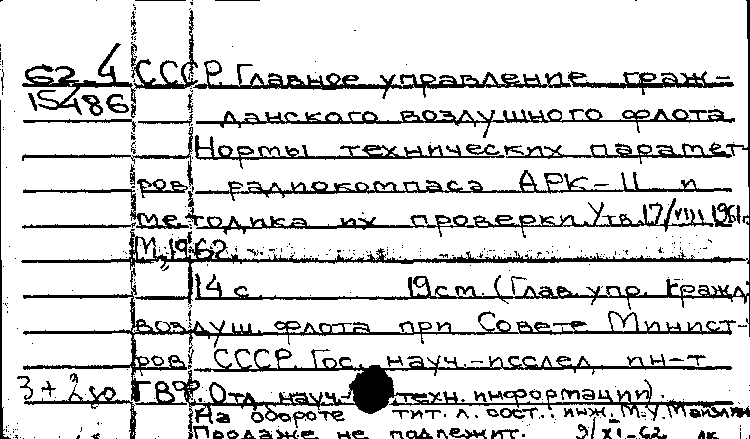 62-4 СССР. Главное управление граж-
15486 данского воздушного флота.
Нормы технических парамет-
ров радиокомпаса АРК-11 и
методика их проверки. Утв. 17/VIII 1961г.
М., 1962.
14 с. 19 см. (Глав. упр. гражд.
воздуш. флота при Совете Минист-
ров СССР. Гос. науч.-исслед. ин-т
3+2 ГВФ. Отд. науч.- техн. информации).
На обороте тит. л. сост.: инж. М.У.
Продаже не подлежит. 9/XI-62